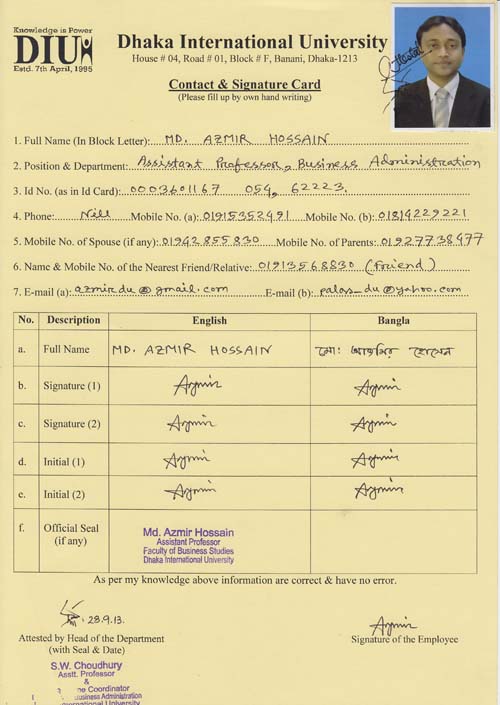 Knowledge is Power
DIU
Estd. 7th April, 1995
Dhaka International University
House # 04, Road # 01, Block # F, Banani, Dhaka-1213
Contact & Signature Card
(Please fill up by own hand writing)
1. Full Name (In Block Letter): MD. AZMIR HOSSAIN
2. Position & Department: Assistant Professor, Business Administration
3. Id No. (as in Id Card): 0003601167 054, 62223.
4. Phone: Nill Mobile No. (a): 01915352491 Mobile No. (b): 01819229221
5. Mobile No. of Spouse (if any): 01942855830 Mobile No. of Parents: 01927738977
6. Name & Mobile No. of the Nearest Friend/Relative: 01913568830 (Friend)
7. E-mail (a): azmirdu@gmail.com E-mail (b): palas_du@yahoo.com
No. Description English Bangla
a. Full Name MD. AZMIR HOSSAIN মো: আজমির হোসেন
b. Signature (1) Azmir Azmir
c. Signature (2) Azmir Azmir
d. Initial (1) Azmir Azmir
e. Initial (2) Azmir Azmir
f. Official Seal (if any)
Md. Azmir Hossain
Assistant Professor
Faculty of Business Studies
Dhaka International University
As per my knowledge above information are correct & have no error.
28.9.13. Azmir
Attested by Head of the Department Signature of the Employee
(with Seal & Date)
S.W. Choudhury
Asstt. Professor
&
Coordinator
Business Administration
International University